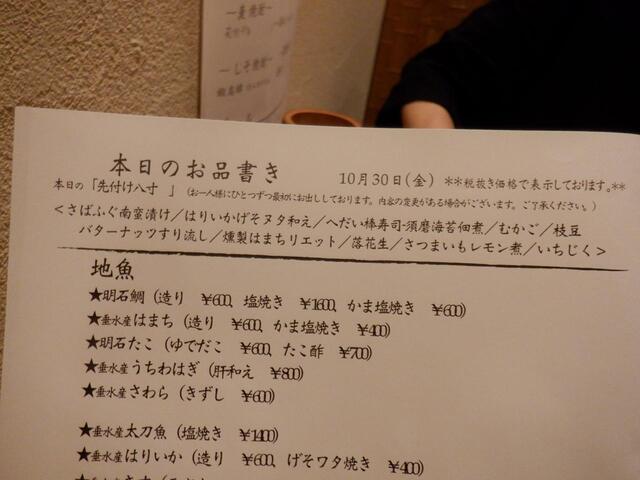 〜麦焼酎〜
〜しそ焼酎〜
本日のお品書き 10月30日(金) **税抜き価格で表示しております。**
本日の「先付け八寸 」(お一人様にひとつずつ最初にお出ししております。内容の変更がある場合がございます。ご了承ください。)
<さばふぐ南蛮漬け/はりいかげそヌタ和え/へだい棒寿司-須磨海苔佃煮/むかご/枝豆
バターナッツすり流し/燻製はまちリエット/落花生/さつまいもレモン煮/いちじく>
地魚
★明石鯛(造り ¥600、塩焼き ¥1600、かま塩焼き ¥600)
★垂水産はまち(造り ¥600、かま塩焼き ¥400)
★明石たこ(ゆでだこ ¥600、たこ酢 ¥700)
★垂水産うちわはぎ(肝和え ¥800)
★垂水産さわら(きずし ¥600)
★垂水産太刀魚(塩焼き ¥1400)
★垂水産はりいか(造り ¥600、げそワタ焼き ¥400)